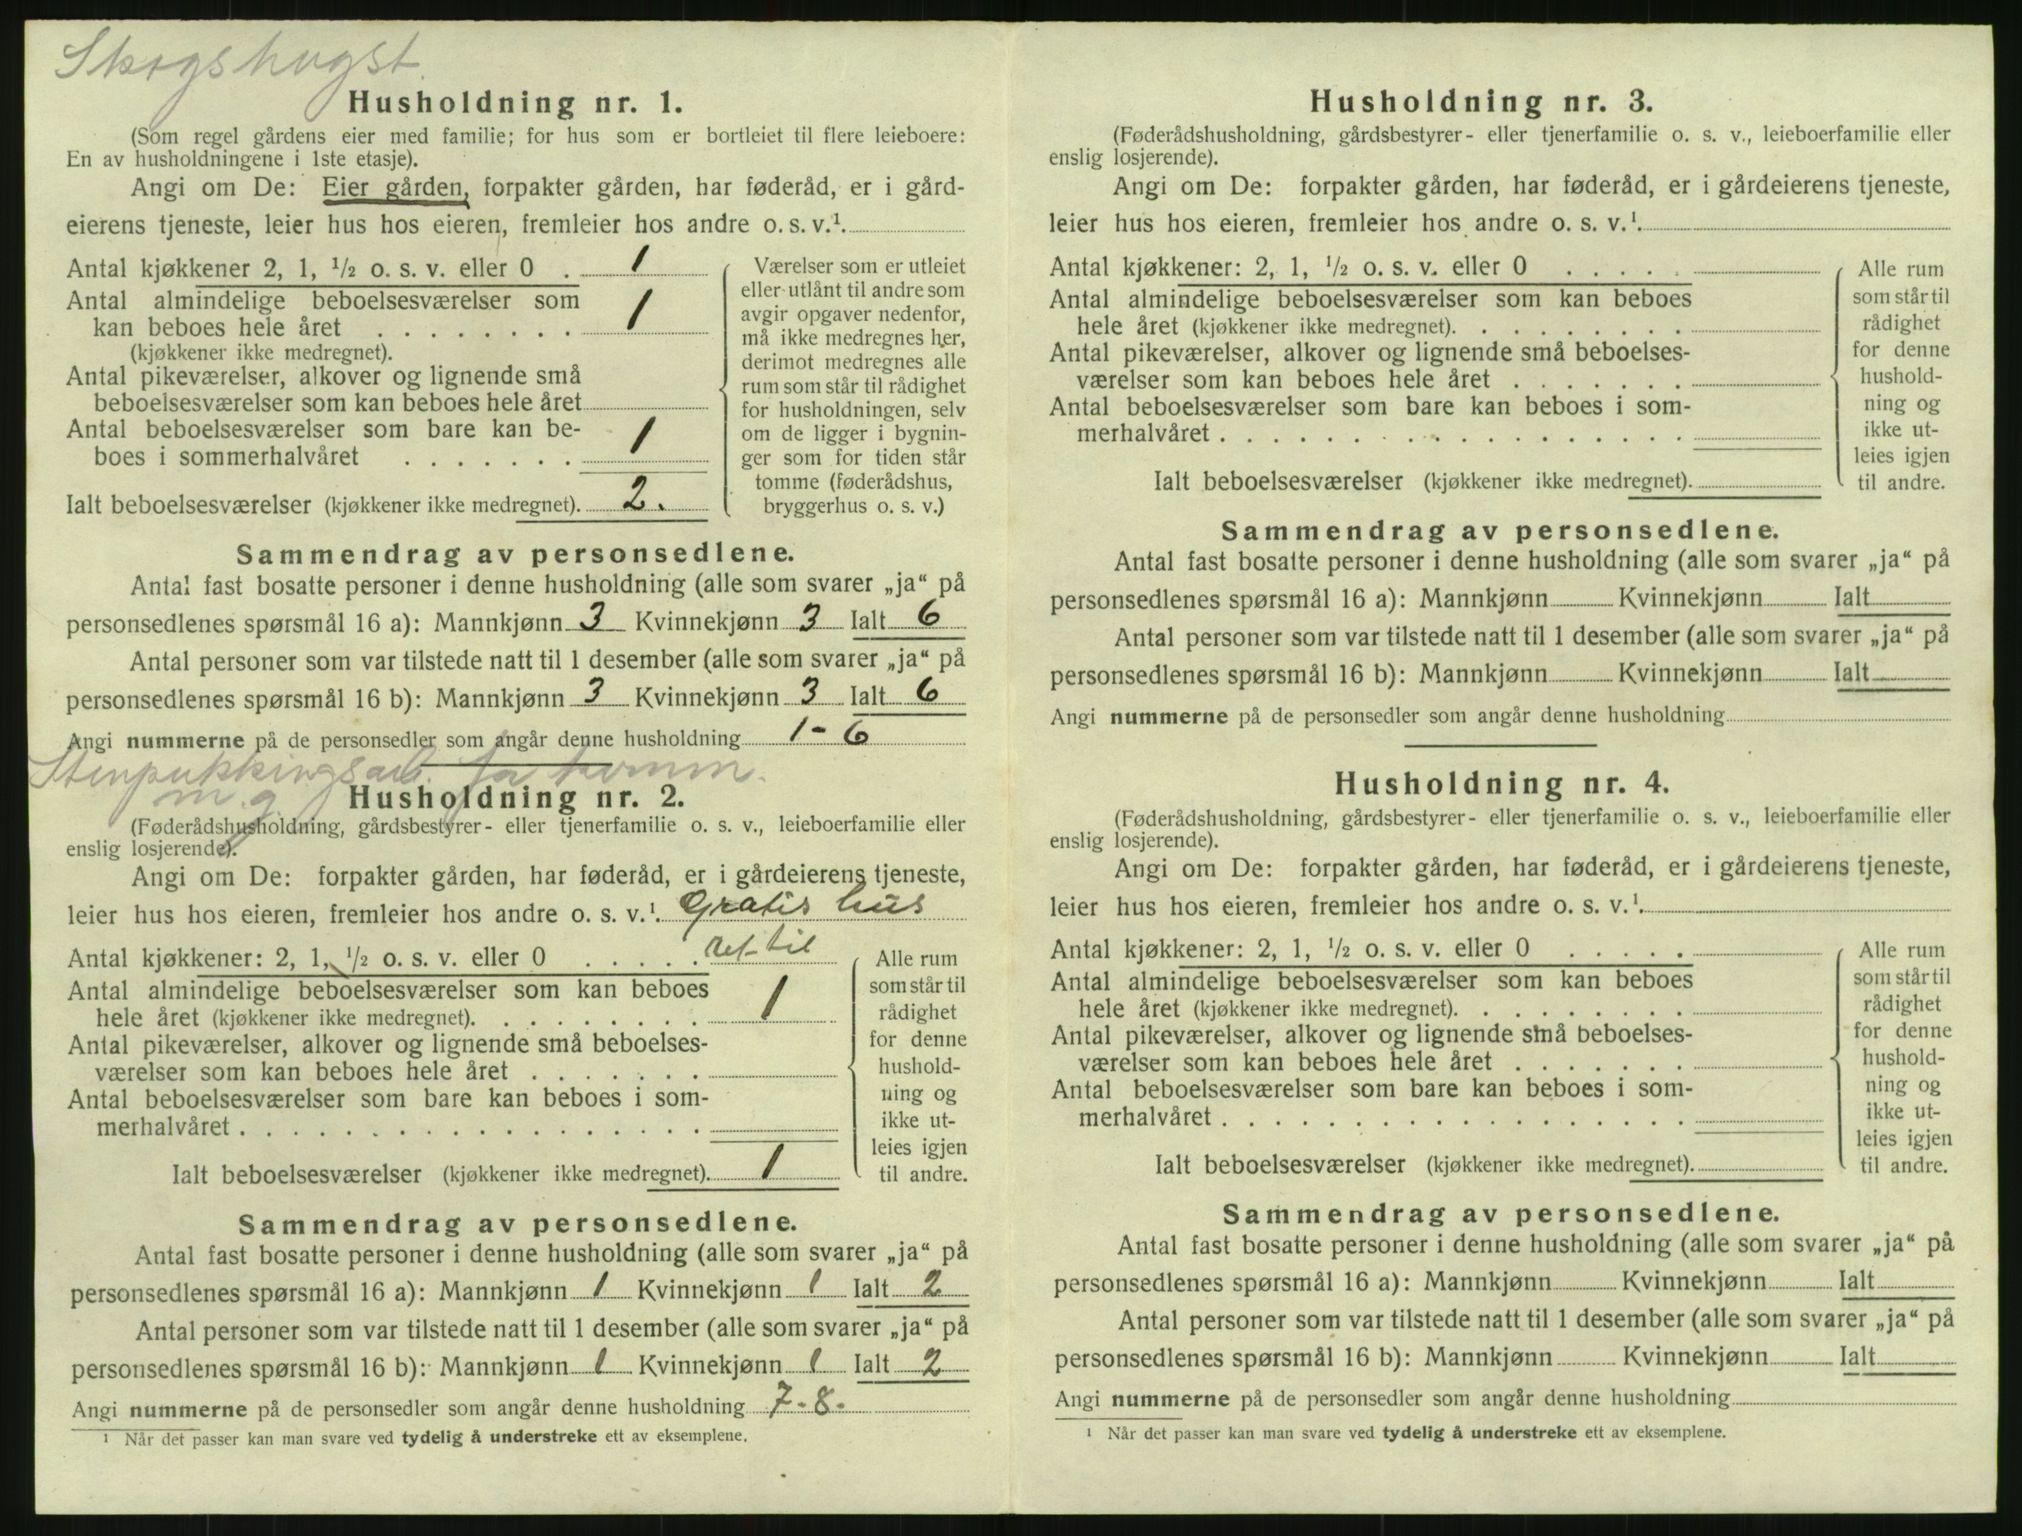 Skogshugst.
Husholdning nr. 1.
(Som regel gårdens eier med familie; for hus som er bortleiet til flere leieboere:
En av husholdningene i 1ste etasje).
Angi om De: Eier gården, forpakter gården, har føderåd, er i gård-
eierens tjeneste, leier hus hos eieren, fremleier hos andre o. s. v.¹.
Antal kjøkkener 2, 1, ½ o. s. v. eller 0 . 1
Antal almindelige beboelsesværelser som
kan beboes hele året . . . . . . . . 1
(kjøkkener ikke medregnet).
Antal pikeværelser, alkover og lignende små
beboelsesværelser som kan beboes hele året
Antal beboelsesværelser som bare kan be-
boes i sommerhalvåret . . . . . . . 1
Ialt beboelsesværelser (kjøkkener ikke medregnet). 2.
Værelser som er utleiet
eller utlånt til andre som
avgir opgaver nedenfor,
må ikke medregnes her,
derimot medregnes alle
rum som står til rådighet
for husholdningen, selv
om de ligger i bygnin-
ger som for tiden står
tomme (føderådshus,
bryggerhus o. s. v.)
Sammendrag av personsedlene.
Antal fast bosatte personer i denne husholdning (alle som svarer „ja“ på
personsedlenes spørsmål 16 a): Mannkjønn 3 Kvinnekjønn 3 Ialt 6
Antal personer som var tilstede natt til 1 desember (alle som svarer „ja“ på
personsedlenes spørsmål 16 b): Mannkjønn 3 Kvinnekjønn 3 Ialt 6
Angi nummerne på de personsedler som angår denne husholdning 1 - 6
Stenpukkingsarb. for komm.
m.g.
Husholdning nr. 2.
(Føderådshusholdning, gårdsbestyrer- eller tjenerfamilie o. s. v., leieboerfamilie eller
enslig losjerende).
Angi om De: forpakter gården, har føderåd, er i gårdeierens tjeneste,
leier hus hos eieren, fremleier hos andre o. s. v.¹. Gratis hus
Antal kjøkkener: 2, 1, ½ o. s. v. eller 0 . . . . . til
Antal almindelige beboelsesværelser som kan beboes
hele året (kjøkkener ikke medregnet). . . . . . . . . 1
Antal pikeværelser, alkover og lignende små beboelses-
værelser som kan beboes hele året . . . . . . .
Antal beboelsesværelser som bare kan beboes i som-
merhalvåret . . . . . . . . . . . . . . . . . .
Ialt beboelsesværelser (kjøkkener ikke medregnet). 1
Alle rum
som står til
rådighet
for denne
hushold-
ning og
ikke ut-
leies igjen
til andre.
Sammendrag av personsedlene.
Antal fast bosatte personer i denne husholdning (alle som svarer „ja“ på
personsedlenes spørsmål 16 a): Mannkjønn 1 Kvinnekjønn 1 Ialt 2
Antal personer som var tilstede natt til 1 desember (alle som svarer „ja“ på
personsedlenes spørsmål 16 b): Mannkjønn 1 Kvinnekjønn 1 Ialt 2
Angi nummerne på de personsedler som angår denne husholdning 7 - 8 -
¹ Når det passer kan man svare ved tydelig å understreke ett av eksemplene.
Husholdning nr. 3.
(Føderådshusholdning, gårdsbestyrer- eller tjenerfamilie o. s. v., leieboerfamilie eller
enslig losjerende).
Angi om De: forpakter gården, har føderåd, er i gårdeierens tjeneste,
leier hus hos eieren, fremleier hos andre o. s. v.¹.
Antal kjøkkener: 2, 1, ½ o. s. v. eller 0 . . . . .
Antal almindelige beboelsesværelser som kan beboes
hele året (kjøkkener ikke medregnet). . . . . . . . .
Antal pikeværelser, alkover og lignende små beboelses-
værelser som kan beboes hele året . . . . . . .
Antal beboelsesværelser som bare kan beboes i som-
merhalvåret . . . . . . . . . . . . . . . . . .
Ialt beboelsesværelser (kjøkkener ikke medregnet).
Alle rum
som står til
rådighet
for denne
hushold-
ning og
ikke ut-
leies igjen
til andre.
Sammendrag av personsedlene.
Antal fast bosatte personer i denne husholdning (alle som svarer „ja“ på
personsedlenes spørsmål 16 a): Mannkjønn Kvinnekjønn Ialt
Antal personer som var tilstede natt til 1 desember (alle som svarer „ja“ på
personsedlenes spørsmål 16 b): Mannkjønn Kvinnekjønn Ialt
Angi nummerne på de personsedler som angår denne husholdning
Husholdning nr. 4.
(Føderådshusholdning, gårdsbestyrer- eller tjenerfamilie o. s. v., leieboerfamilie eller
enslig losjerende).
Angi om De: forpakter gården, har føderåd, er i gårdeierens tjeneste,
leier hus hos eieren, fremleier hos andre o. s. v.¹.
Antal kjøkkener: 2, 1, ½ o. s. v. eller 0 . . . . .
Antal almindelige beboelsesværelser som kan beboes
hele året (kjøkkener ikke medregnet). . . . . . . . .
Antal pikeværelser, alkover og lignende små beboelses-
værelser som kan beboes hele året . . . . . . .
Antal beboelsesværelser som bare kan beboes i som-
merhalvåret . . . . . . . . . . . . . . . . . .
Ialt beboelsesværelser (kjøkkener ikke medregnet).
Alle rum
som står til
rådighet
for denne
hushold-
ning og
ikke ut-
leies igjen
til andre.
Sammendrag av personsedlene.
Antal fast bosatte personer i denne husholdning (alle som svarer „ja“ på
personsedlenes spørsmål 16 a): Mannkjønn Kvinnekjønn Ialt
Antal personer som var tilstede natt til 1 desember (alle som svarer „ja“ på
personsedlenes spørsmål 16 b): Mannkjønn Kvinnekjønn Ialt
Angi nummerne på de personsedler som angår denne husholdning
¹ Når det passer kan man svare ved tydelig å understreke ett av eksemplene.